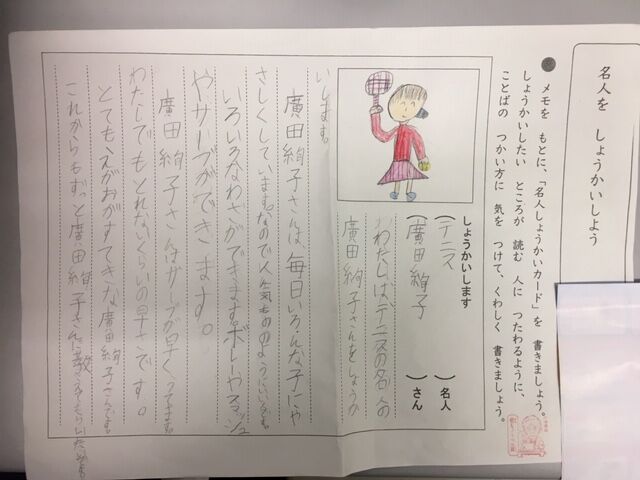 名人を しょうかいしよう
●メモを もとに、「名人しょうかいカード」を 書きましょう。
しょうかいしたい ところが 読む 人に つたわるように、
ことばの つかい方に 気を つけて、くわしく 書きましょう。
しょうかいします
(テニス)名人
(廣田絢子)さん
わたしは、テニスの名人の
廣田絢子さんをしょうか
いします。
廣田絢子さんは、毎日いろんな子にや
さしくしています。なので人気もの
いろいろなわざができます。ボレーやスマッシュ
やサーブができます。
廣田絢子さんはサーブが早くって
わたしでもとれないくらいの早さです。
とてもえがおがすてきな廣田絢子さんです。
これからもずっと廣田絢子さんに教えてもらいたい